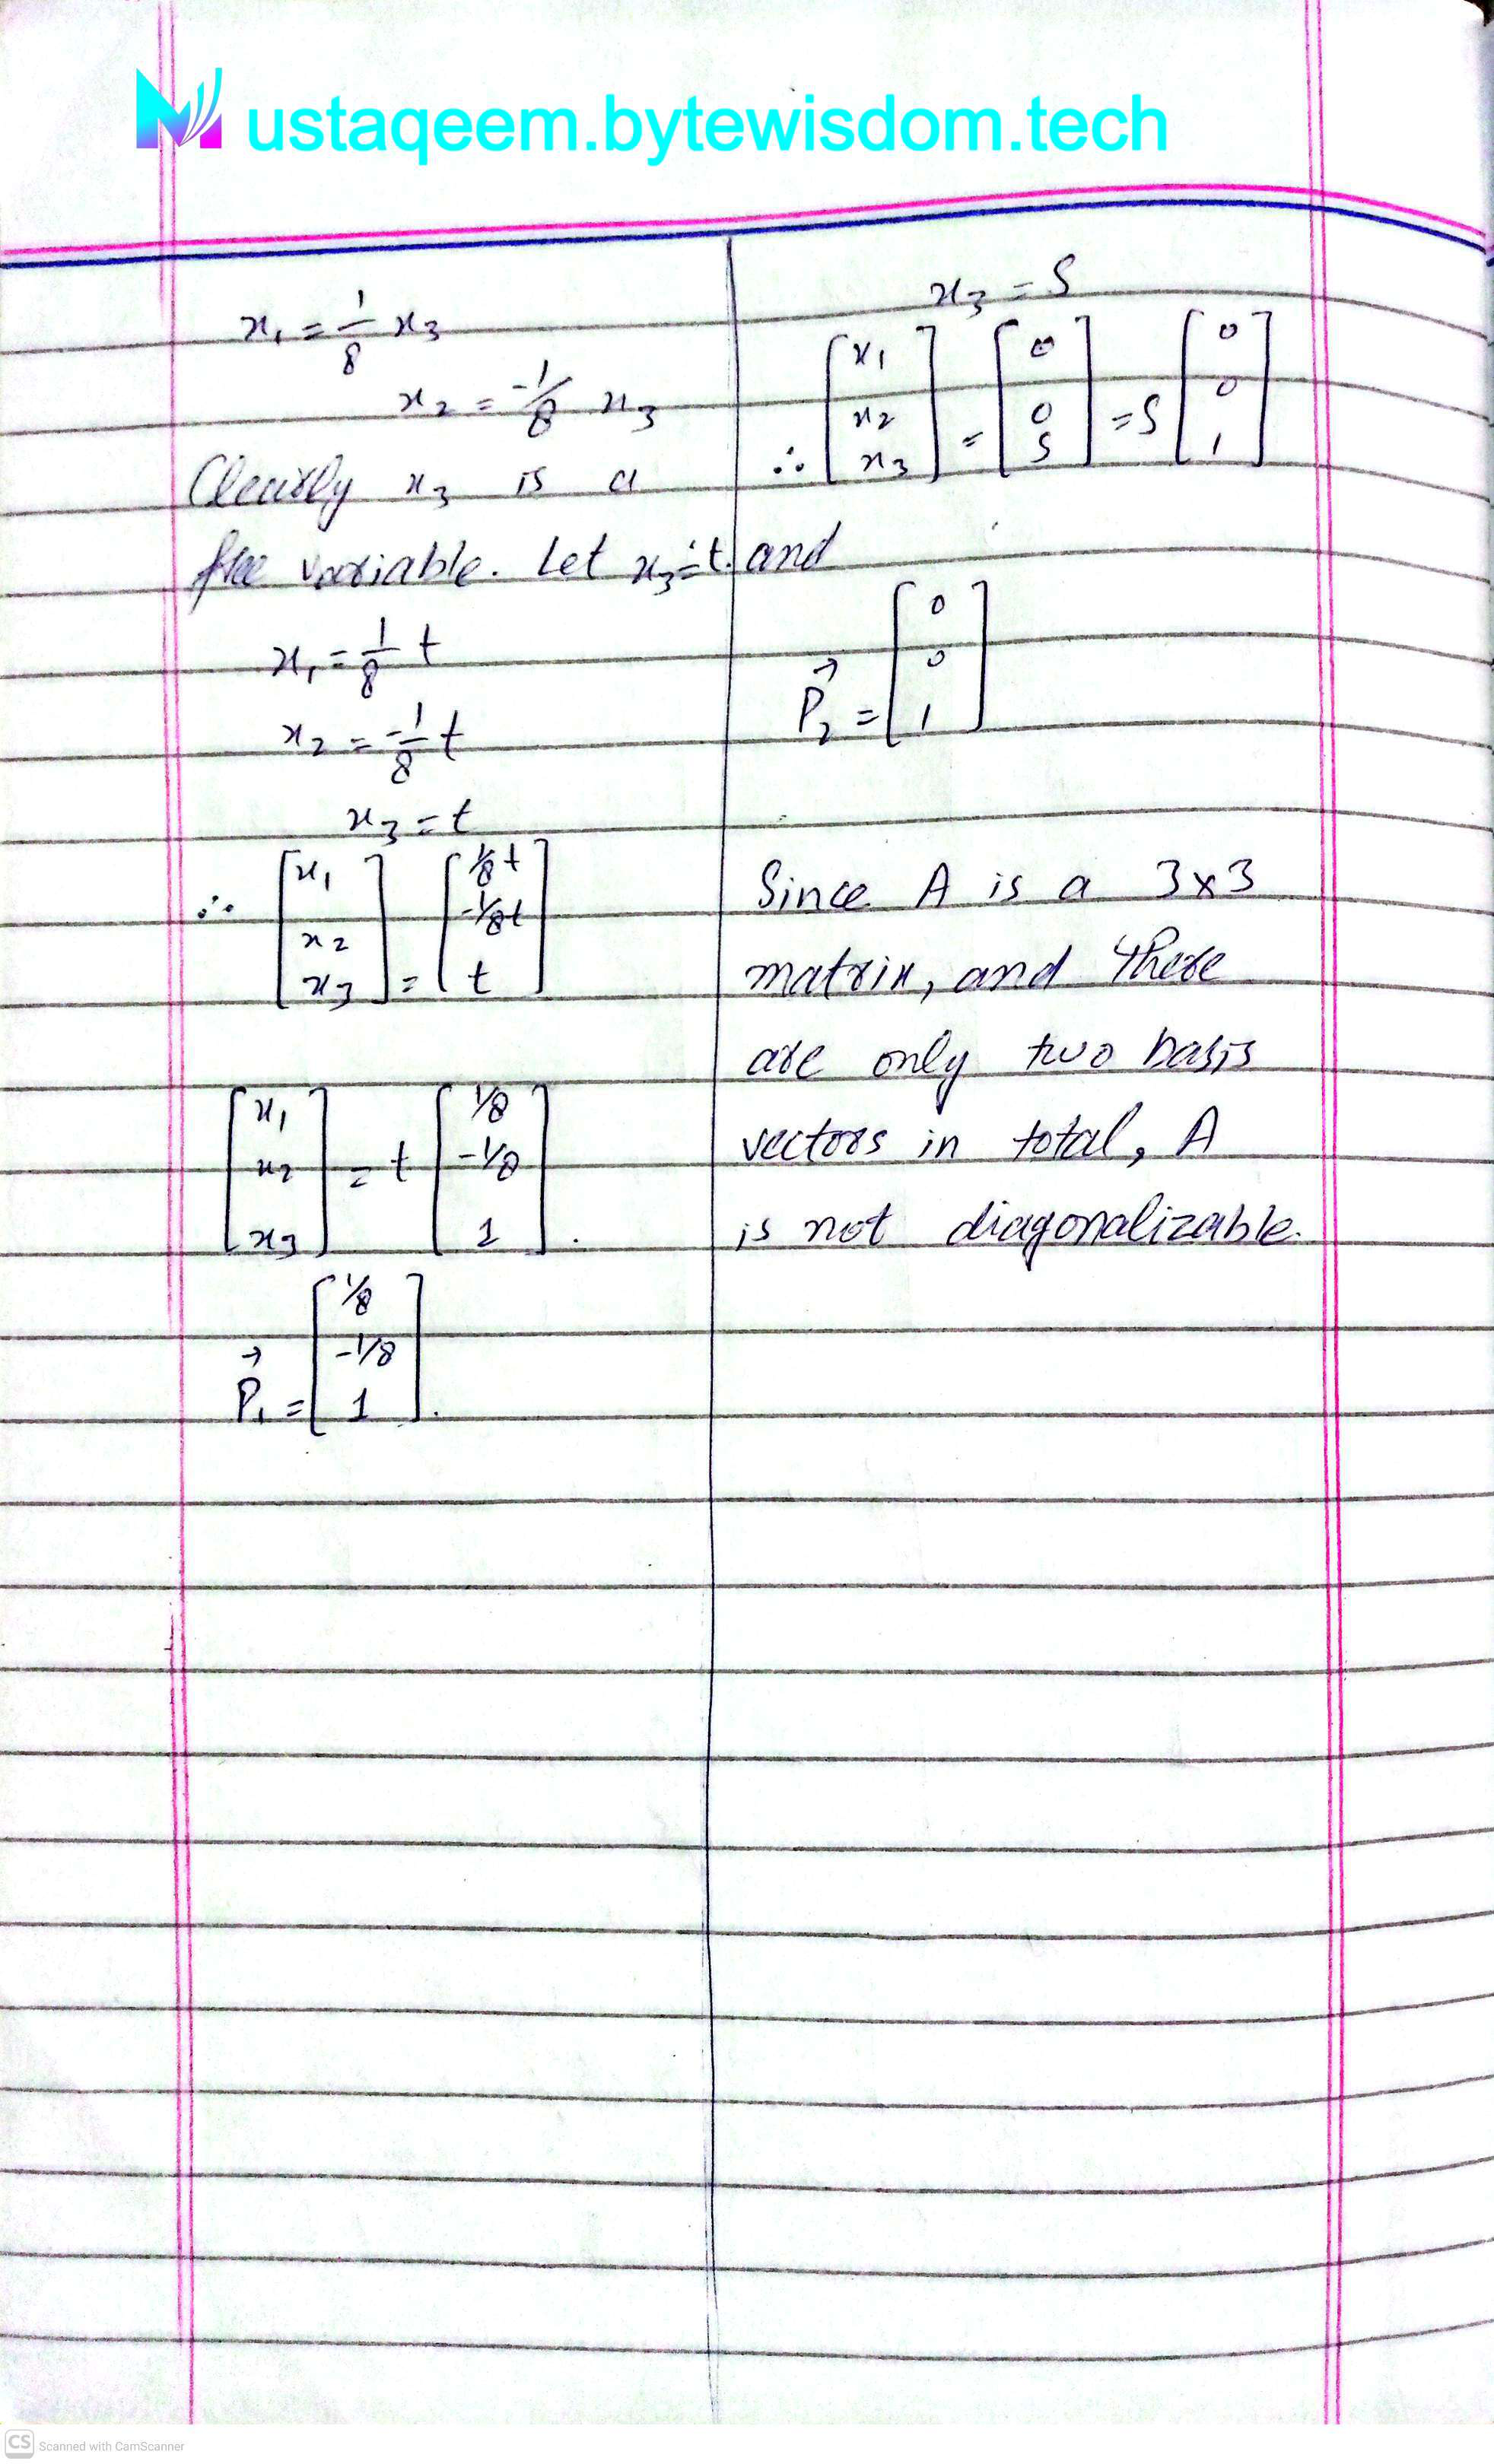 Mustaqeem.bytewisdom.tech
x₁ = 1/8 x₃
x₂ = -1/8 x₃
Clearly x₃ is a
free variable. Let x₃ = t. and
x₁ = 1/8 t
x₂ = -1/8 t
x₃ = t
∴ [x₁ x₂ x₃] = [1/8t -1/8t t]
[x₁ x₂ x₃] = t [1/8 -1/8 1].
P⃗₁ = [1/8 -1/8 1].
x₃ = S
∴ [x₁ x₂ x₃] = [0 0 S] = S [0 0 1]
P⃗₂ = [0 0 1]
Since A is a 3x3
matrix, and there
are only two basis
vectors in total, A
is not diagonalizable.
CS Scanned with CamScanner